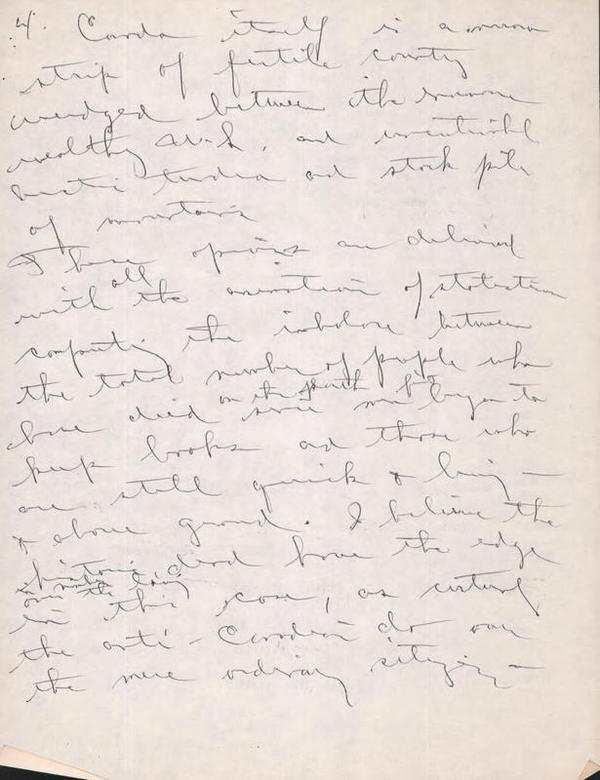 4. Canada itself is a narrow
strip of fertile country
wedged between the
wealthy and
tundra and stock pile
of mountains
These opinions are delivered
with all the of statistician
computing the imbalance between
the total number of people who
have died on the earth since man first began to
keep books and those who
are still quick & living —
& above ground. I believe the
historic dead have the edge
in numbers over the living
in this case, as
the anti-Canadian do over
the mere ordinary citizen —